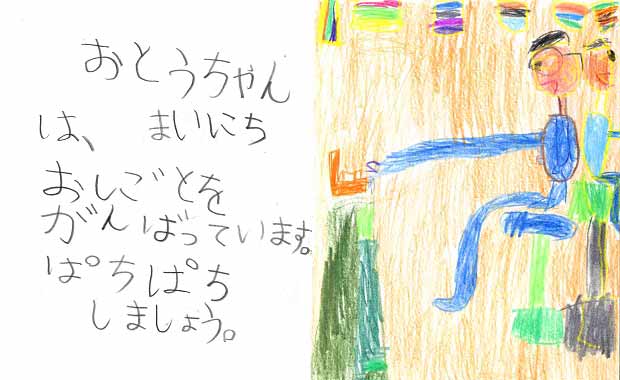 おとうちゃん
は、 まいにち
おしごとを
がんばっています。
ぱちぱち
しましょう。